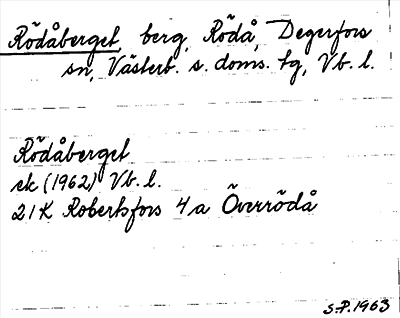 Rödåberget, berg, Rödå, Degerfors
sn, Västerb. s. doms. tg, Vb. l.
Rödåberget
ek (1962) Vb. l.
21K Robertsfors 4a Överrödå
S.P. 1963